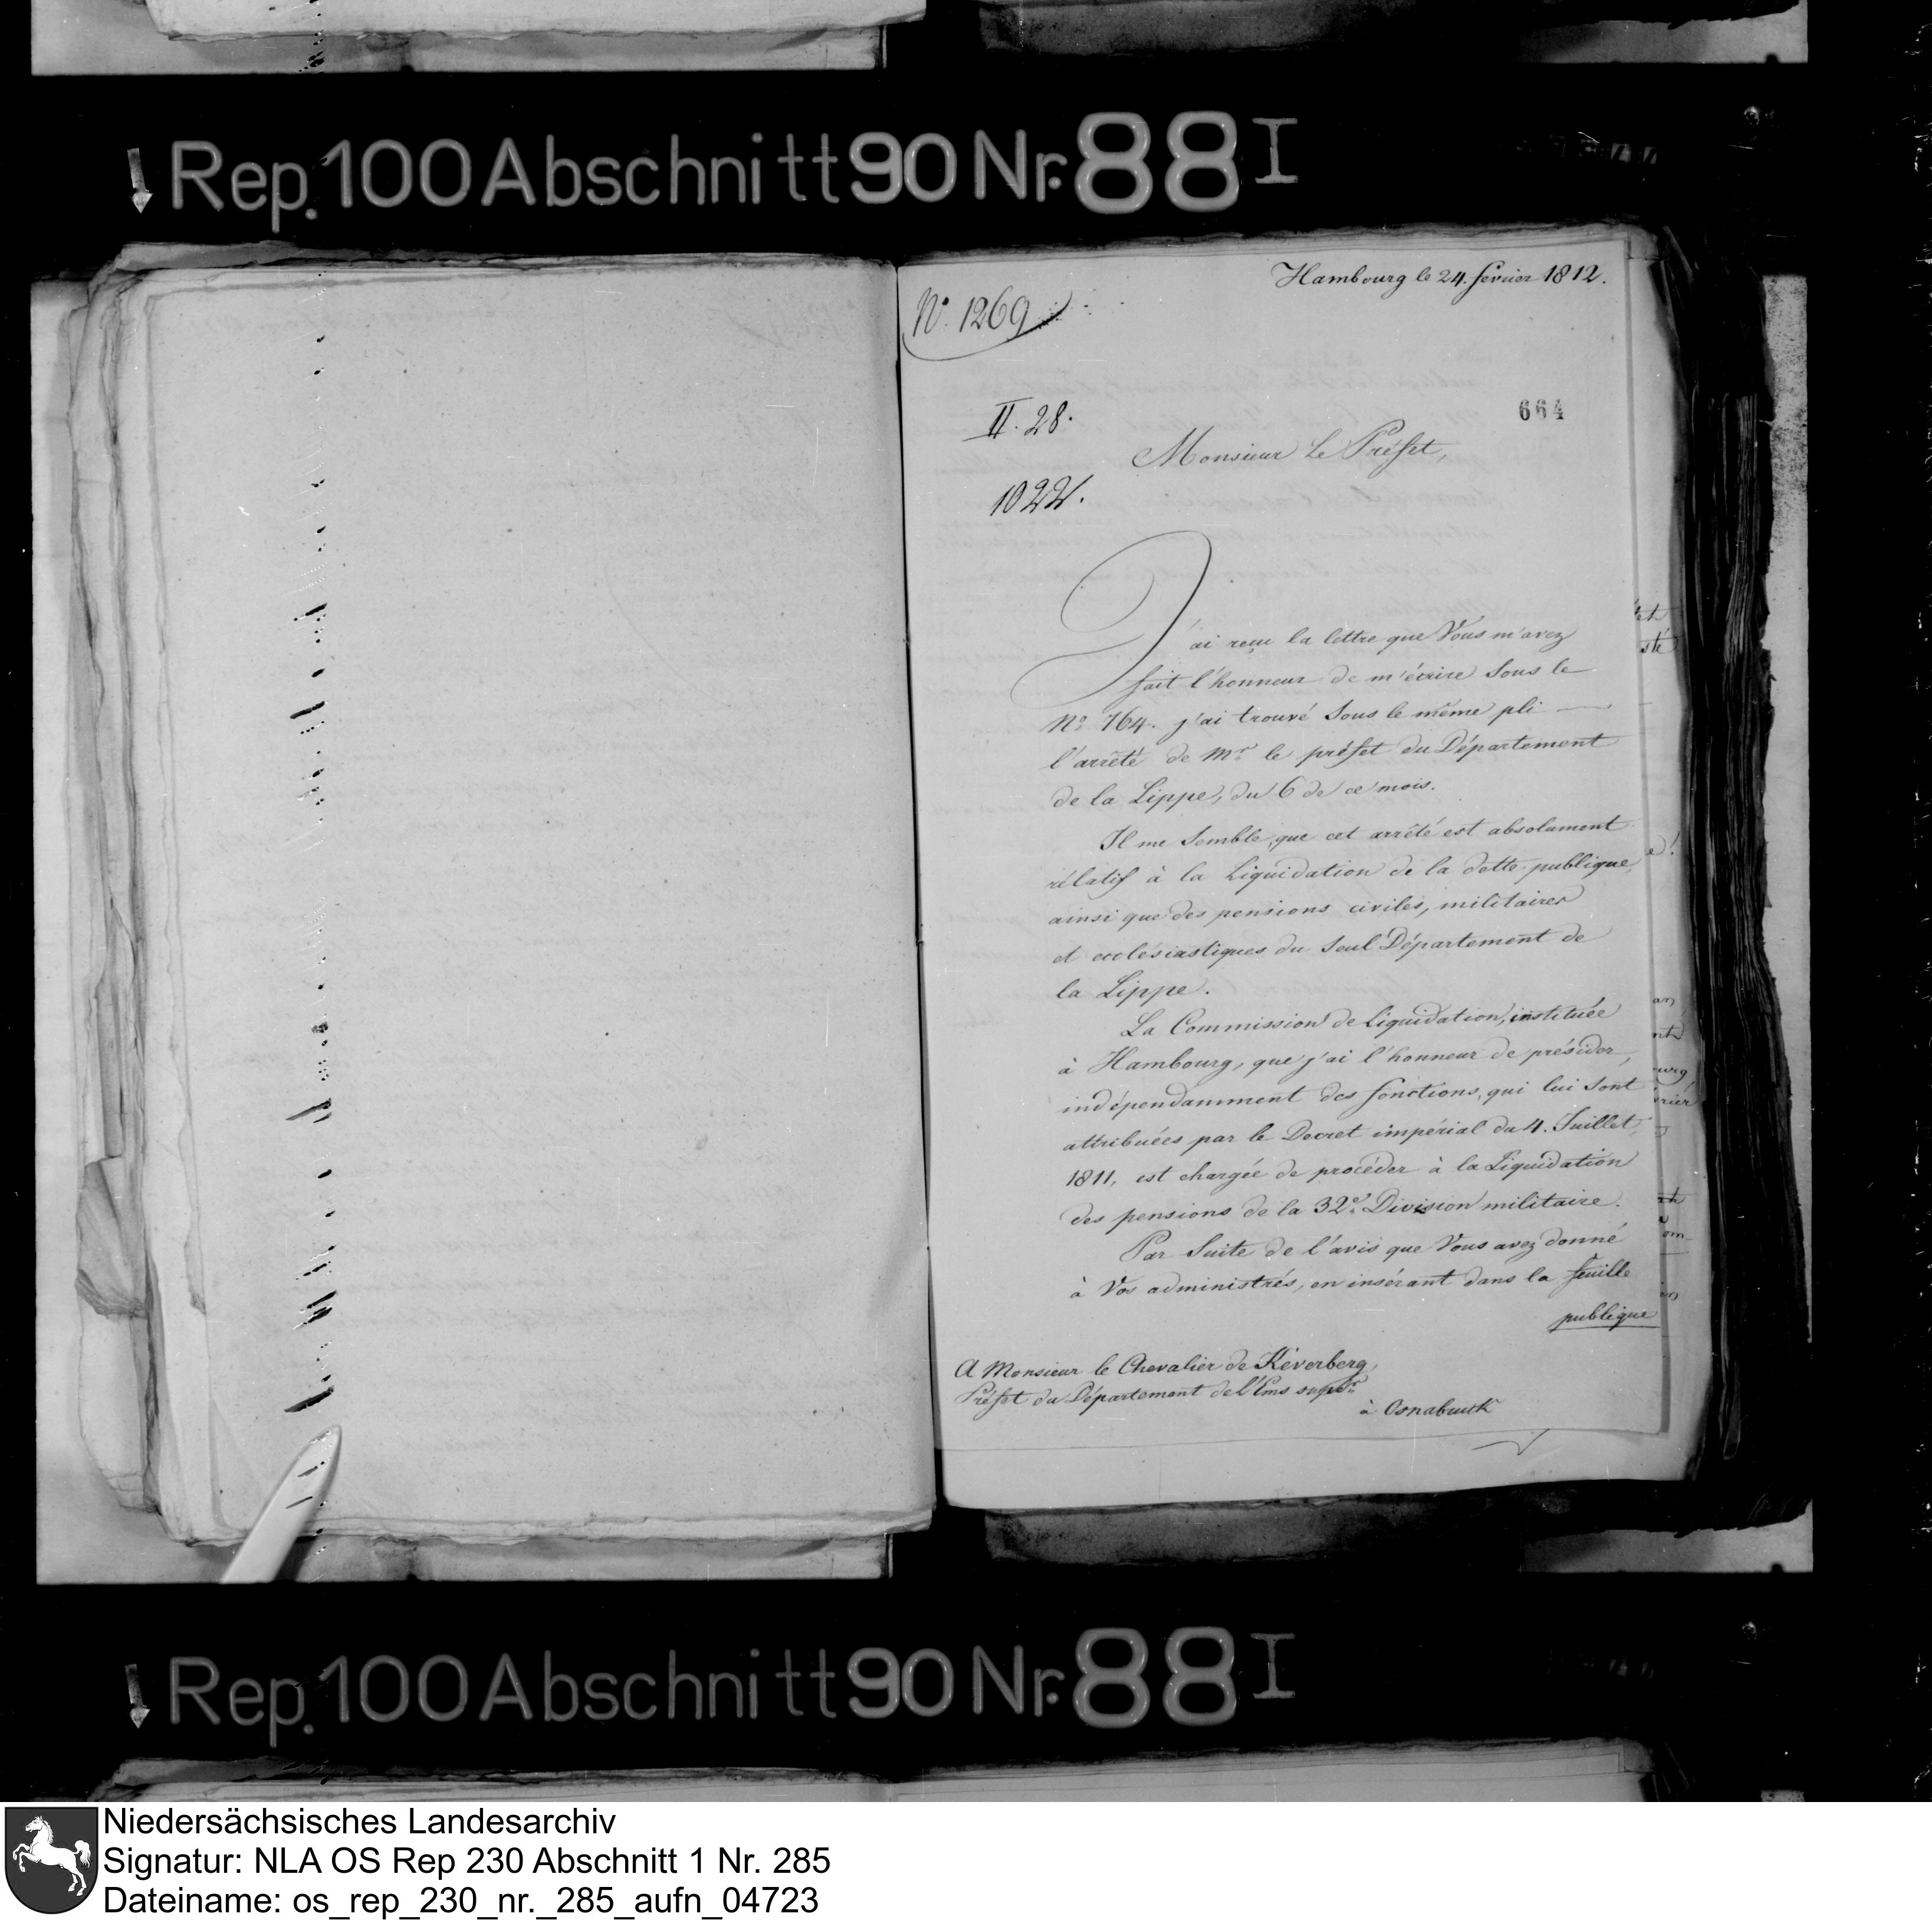 Rep. 100 Abschnitt 90 Nr. 88 I
Hambourg le 24. fevrier 1812.
N.º 1269
664
II. 28.
Monsieur Le Préfet,
1022.
J'ai reçu la lettre que Vous m'avez
fait l'honneur de m'écrire sous le
Nº 764. j'ai trouvé sous le même pli
l'arrêté de Mr. le préfet du Département
de la Lippe, du 6 de ce mois.
Il me semble, que cet arrêté est absolument
rélatif à la Liquidation de la dette publique,
ainsi que des pensions civiles, militaires
et ecclésiastiques du seul Département de
la Lippe.
La Commission de Liquidation, instituée
à Hambourg, que j'ai l'honneur de présider,
indépendamment des fonctions, qui lui sont
attribuées par le Decret impérial du 4. Juillet,
1811, est chargée de procéder à la Liquidation
des pensions de la 32e. Division militaire.
Par Suite de l'avis que Vous avez donné
à Vos administrés, en insérant dans la feuille
publique
A Monsieur le Chevalier de Kéverberg,
Préfet du Département de l'Ems supér.
à Osnabruck
Rep. 100 Abschnitt 90 Nr. 88 I
Niedersächsisches Landesarchiv
Signatur: NLA OS Rep 230 Abschnitt 1 Nr. 285
Dateiname: os_rep_230_nr._285_aufn_04723